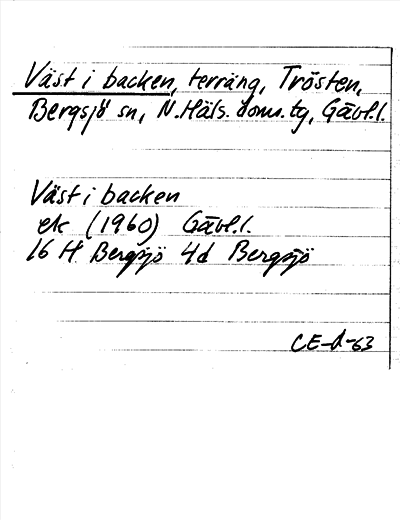 Väst i backen, terräng, Trösten,
Bergsjö sn, N.Häls. doms.tg, Gävl.l.
Väst i backen
ek (1960) Gävl.l.
16 H Bergsjö 4d Bergsjö
CE-A-63